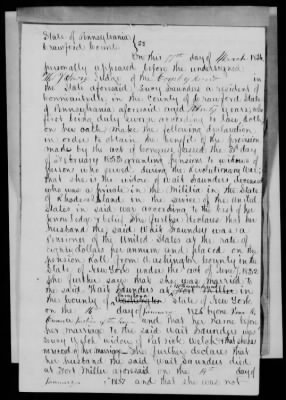 State of Pennsylvania
Crawford County } SS
On this 17th day of March 1854
personally appeared before the undersigned
Judge of the County Court in
the State aforesaid, Lucy Saunders a resident of
in the County of Crawford, State
of Pennsylvania aforesaid aged years, who
first being duly sworn according to law, doth
on her oath make the following declaration
in order to obtain the benefit of the provision
made by the act of Congress passed the 3d day
of February 1853: granting pension to widows of
persons who served during the Revolutionary War:
that she is the widow of Wait Saunders deceased
who was a private in the Militia in the State
of Rhode Island in the service of the United
States in said war according to the best of her
knowledge & belief. She further declares that her
husband the said Wait Saunders was a
Pensioner of the United States at the rate of
dollars per annum and placed on the
pension Roll, from Washington County in the
State of New York under the act of June 7, 1832
She further says that she was married to
the said Wait Saunders at
in the County of State of New York
on the day of January 1826 by
and that her name before
her marriage to the said Wait Saunders was
Lucy Welch widow of Patrick Welch that she has
no record of her marriage. She further declares that
her husband the said Wait Saunders died
at Fort Miller aforesaid on the day of
January 1837 and that she was not